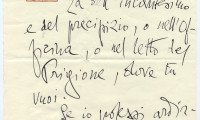 La sua incantesimo
e del precipizio, o nell'Of-
ficina, o nel letto del
Prigione, dove tu
vuoi.
Se io potessi ardir-